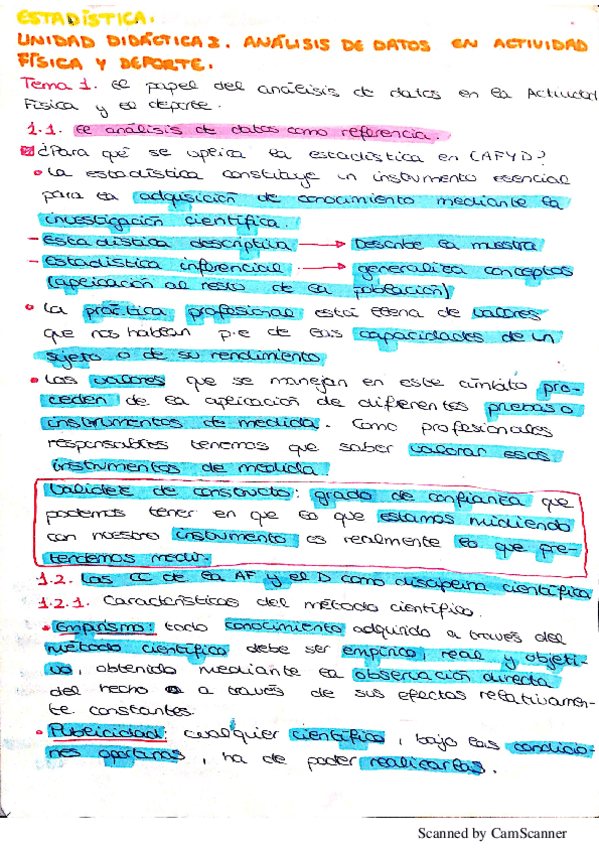 ESTADÍSTICA.
UNIDAD DIDÁCTICA I. ANÁLISIS DE DATOS EN ACTIVIDAD
FÍSICA Y DEPORTE.
Tema 1. El papel del análisis de datos en la Actividad
Física y el deporte.
1.1. El análisis de datos como referencia.
¿Para qué se aplica la estadística en CAFYD?
• La estadística constituye un instrumento esencial
para la adquisición de conocimiento mediante la
investigación científica.
- Estadística descriptiva → Describe la muestra
- Estadística inferencial → generaliza conceptos
(aplicación al resto de la población)
• La práctica profesional está llena de valores
que nos hablan p.e de las capacidades de un
sujeto o de su rendimiento
• Los valores que se manejan en este ámbito pro-
ceden de la aplicación de diferentes pruebas o
instrumentos de medida. Como profesionales
responsables tenemos que saber valorar esos
instrumentos de medida
Validez de constructo: grado de confianza que
podemos tener en que lo que estamos midiendo
con nuestro instrumento es realmente lo que pre-
tendemos medir.
1.2. Las CC de la AF y el D como disciplina científica
1.2.1. Características del método científico.
• Empirismo: todo conocimiento adquirido a través del
método científico debe ser empírico, real y objeti-
vo, obtenido mediante la observación directa
del hecho o a través de sus efectos relativamen-
te constantes.
• Publicidad: cualquier científico, bajo las condicio-
nes oportunas, ha de poder realizarlas.
Scanned by CamScanner